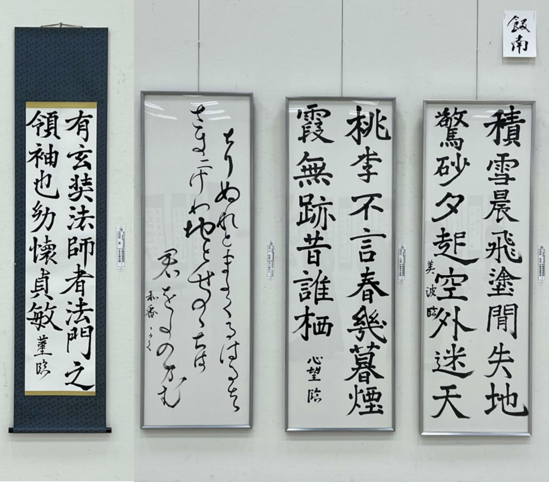 飯南
積雪晨飛塗閒失地
驚砂夕起空外迷天
美波臨
桃李不言春幾暮煙
霞無跡昔誰栖
心望臨
ちりぬれとまたくるはるは
さきにけりちとせのゝちは
君をたのまむ
和香かく
有玄奘法師者法門之
領袖也幼懷貞敏
菫臨